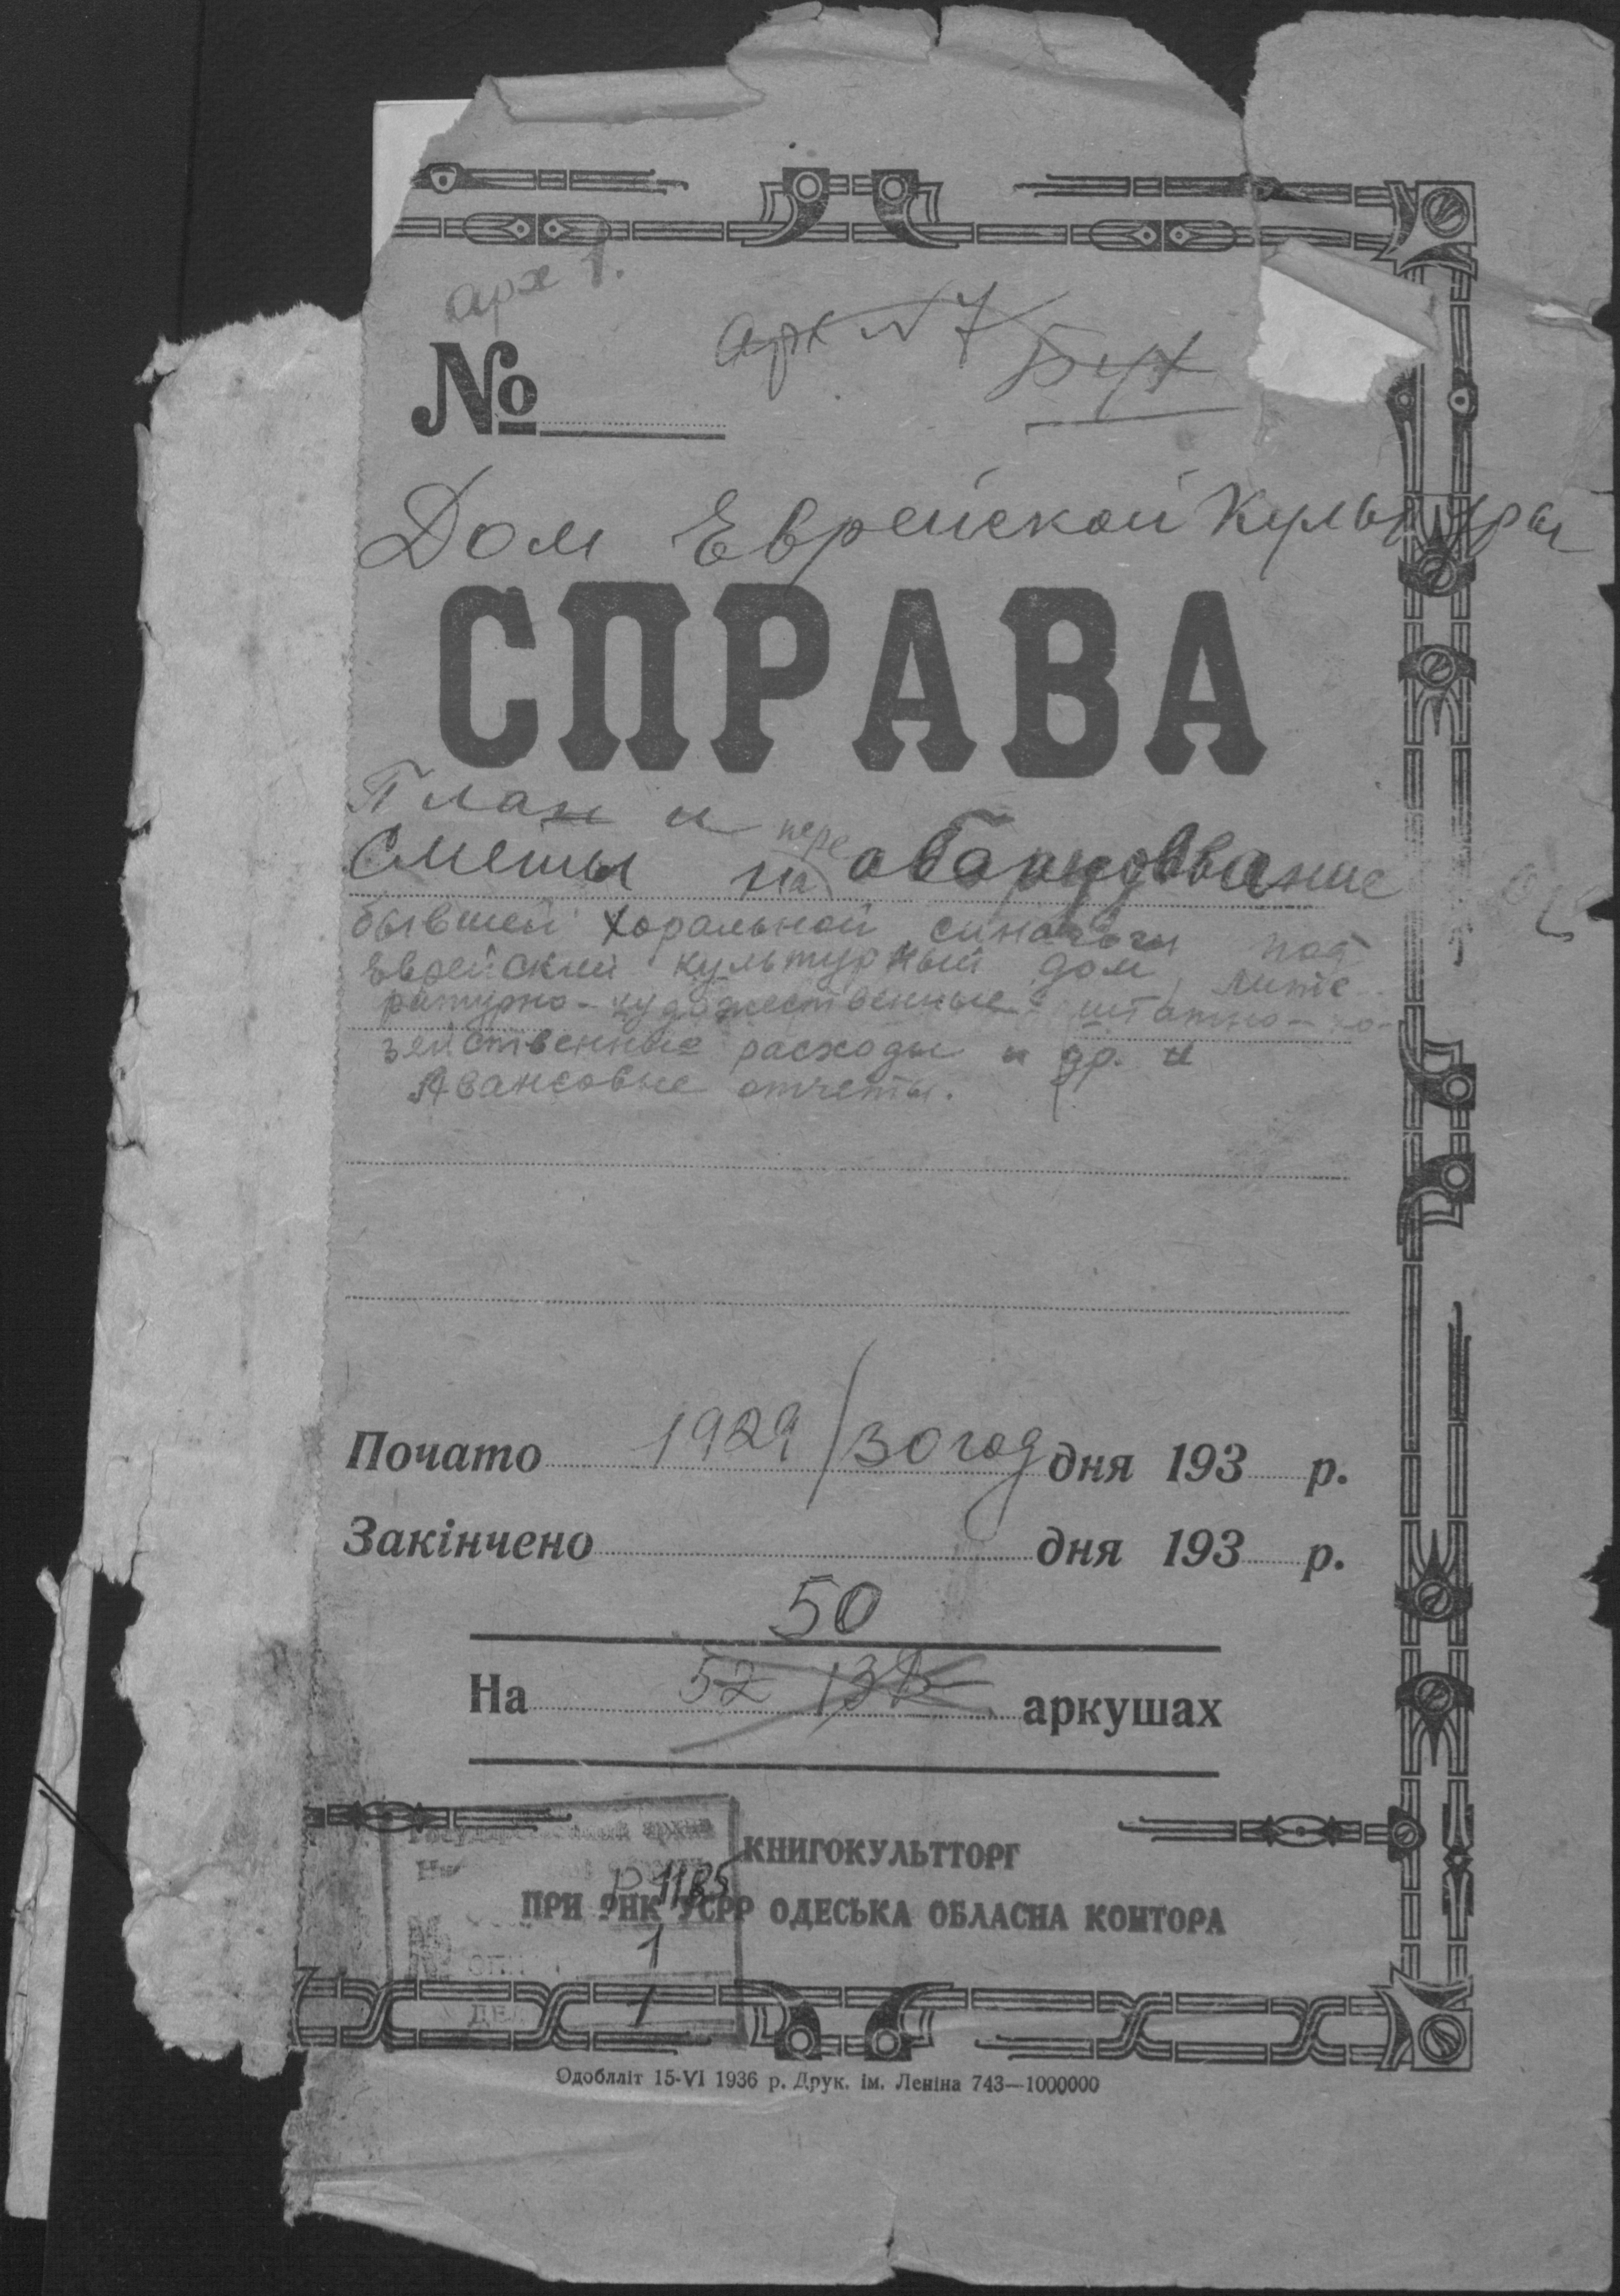 арх 1.
арх N 7
Бух
№
Дом Еврейской Культуры
СПРАВА
План и
Сметы на переобарудование
бывшей хоральной синагоги под
Еврейский культурный дом, лите-
ратурно-художественные штатно-хо-
зяйственные расходы и др. и
Авансовые отчеты.
Почато 1929/30 год дня 193 р.
Закінчено дня 193 р.
50
На 52 132 аркушах
Государственный архив
КНИГОКУЛЬТТОРГ
Р 1185
ПРИ РНК УСРР ОДЕСЬКА ОБЛАСНА КОНТОРА
1
ДЕЛ 1
Одоблліт 15-VI 1936 р. Друк. ім. Леніна 743—1000000